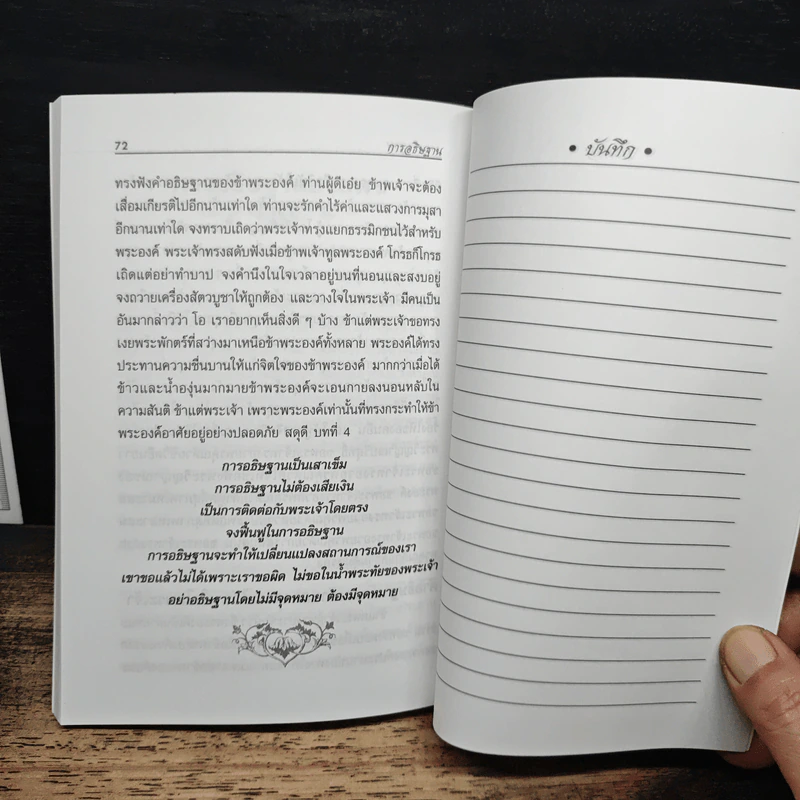 72
การอธิษฐาน
ทรงฟังคำอธิษฐานของข้าพระองค์ ท่านผู้ดีเอ๋ย ข้าพเจ้าจะต้อง
เสื่อมเกียรติไปอีกนานเท่าใด ท่านจะรักคำไร้ค่าและแสวงการมุสา
อีกนานเท่าใด จงทราบเถิดว่าพระเจ้าทรงแยกธรรมิกชนไว้สำหรับ
พระองค์ พระเจ้าทรงสดับฟังเมื่อข้าพเจ้าทูลพระองค์ โกรธก็โกรธ
เถิดแต่อย่าทำบาป จงคำนึงในใจเวลาอยู่บนที่นอนและสงบอยู่
จงถวายเครื่องสัตวบูชาให้ถูกต้อง และวางใจในพระเจ้า มีคนเป็น
อันมากล่าวว่า โอ เราอยากเห็นสิ่งดี ๆ บ้าง ข้าแต่พระเจ้าขอทรง
เงยพระพักตร์ที่สว่างมาเหนือข้าพระองค์ทั้งหลาย พระองค์ได้ทรง
ประทานความชื่นบานให้แก่จิตใจของข้าพระองค์ มากกว่าเมื่อได้
ข้าวและน้ำองุ่นมากมายข้าพระองค์จะเอนกายลงนอนหลับใน
ความสันติ ข้าแต่พระเจ้า เพราะพระองค์เท่านั้นที่ทรงกระทำให้ข้า
พระองค์อาศัยอยู่อย่างปลอดภัย สดุดี บทที่ 4
การอธิษฐานเป็นเสาเข็ม
การอธิษฐานไม่ต้องเสียเงิน
เป็นการติดต่อกับพระเจ้าโดยตรง
จงฟื้นฟูในการอธิษฐาน
การอธิษฐานจะทำให้เปลี่ยนแปลงสถานการณ์ของเรา
เขาขอแล้วไม่ได้เพราะเราขอผิด ไม่ขอในน้ำพระทัยของพระเจ้า
อย่าอธิษฐานโดยไม่มีจุดหมาย ต้องมีจุดหมาย
• บันทึก •